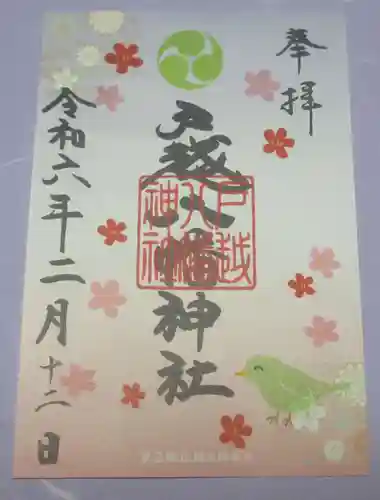 奉拝
戸越八幡神社
戸越
八幡
神社
令和六年二月十二日